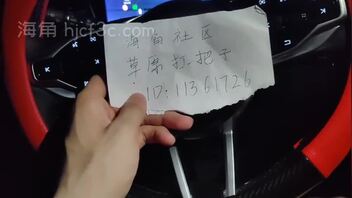 海角 hjcfcc.com
海角社区
草席扛把子
ID:11361726